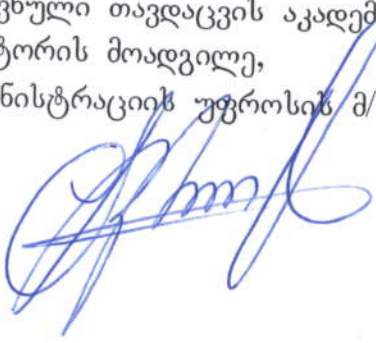 ვნული თავდაცვის აკადემ
ტორის მოადგილე,
ნისტრაციის უფროსის მ/